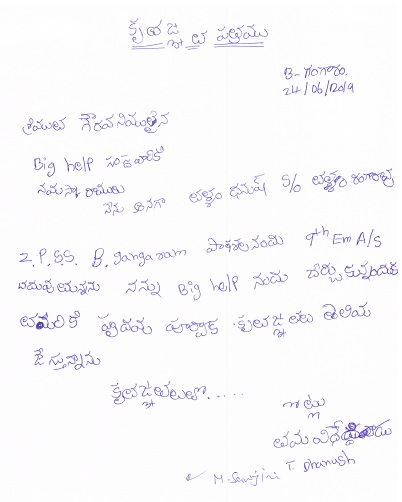 కృతజ్ఞతా పత్రము
B- గంగారం.
24/06/2019
శ్రీయుత గౌరవనీయులైన
Big help సంస్థ వారికి
నమస్కారములు
నేను అనగా ధనుష్ S/o
Z.P.S.S. B. gangaram పాఠశాలనందు 9th Em A/S
చదువుతున్నాను నన్ను Big help నందు చేర్చుకున్నందుకు
తమరికి హృదయ పూర్వక కృతజ్ఞతలు తెలియ
జేస్తున్నాను
కృతజ్ఞతలతో......
ఇట్లు
తమ విధేయుడు
T. Dhanush